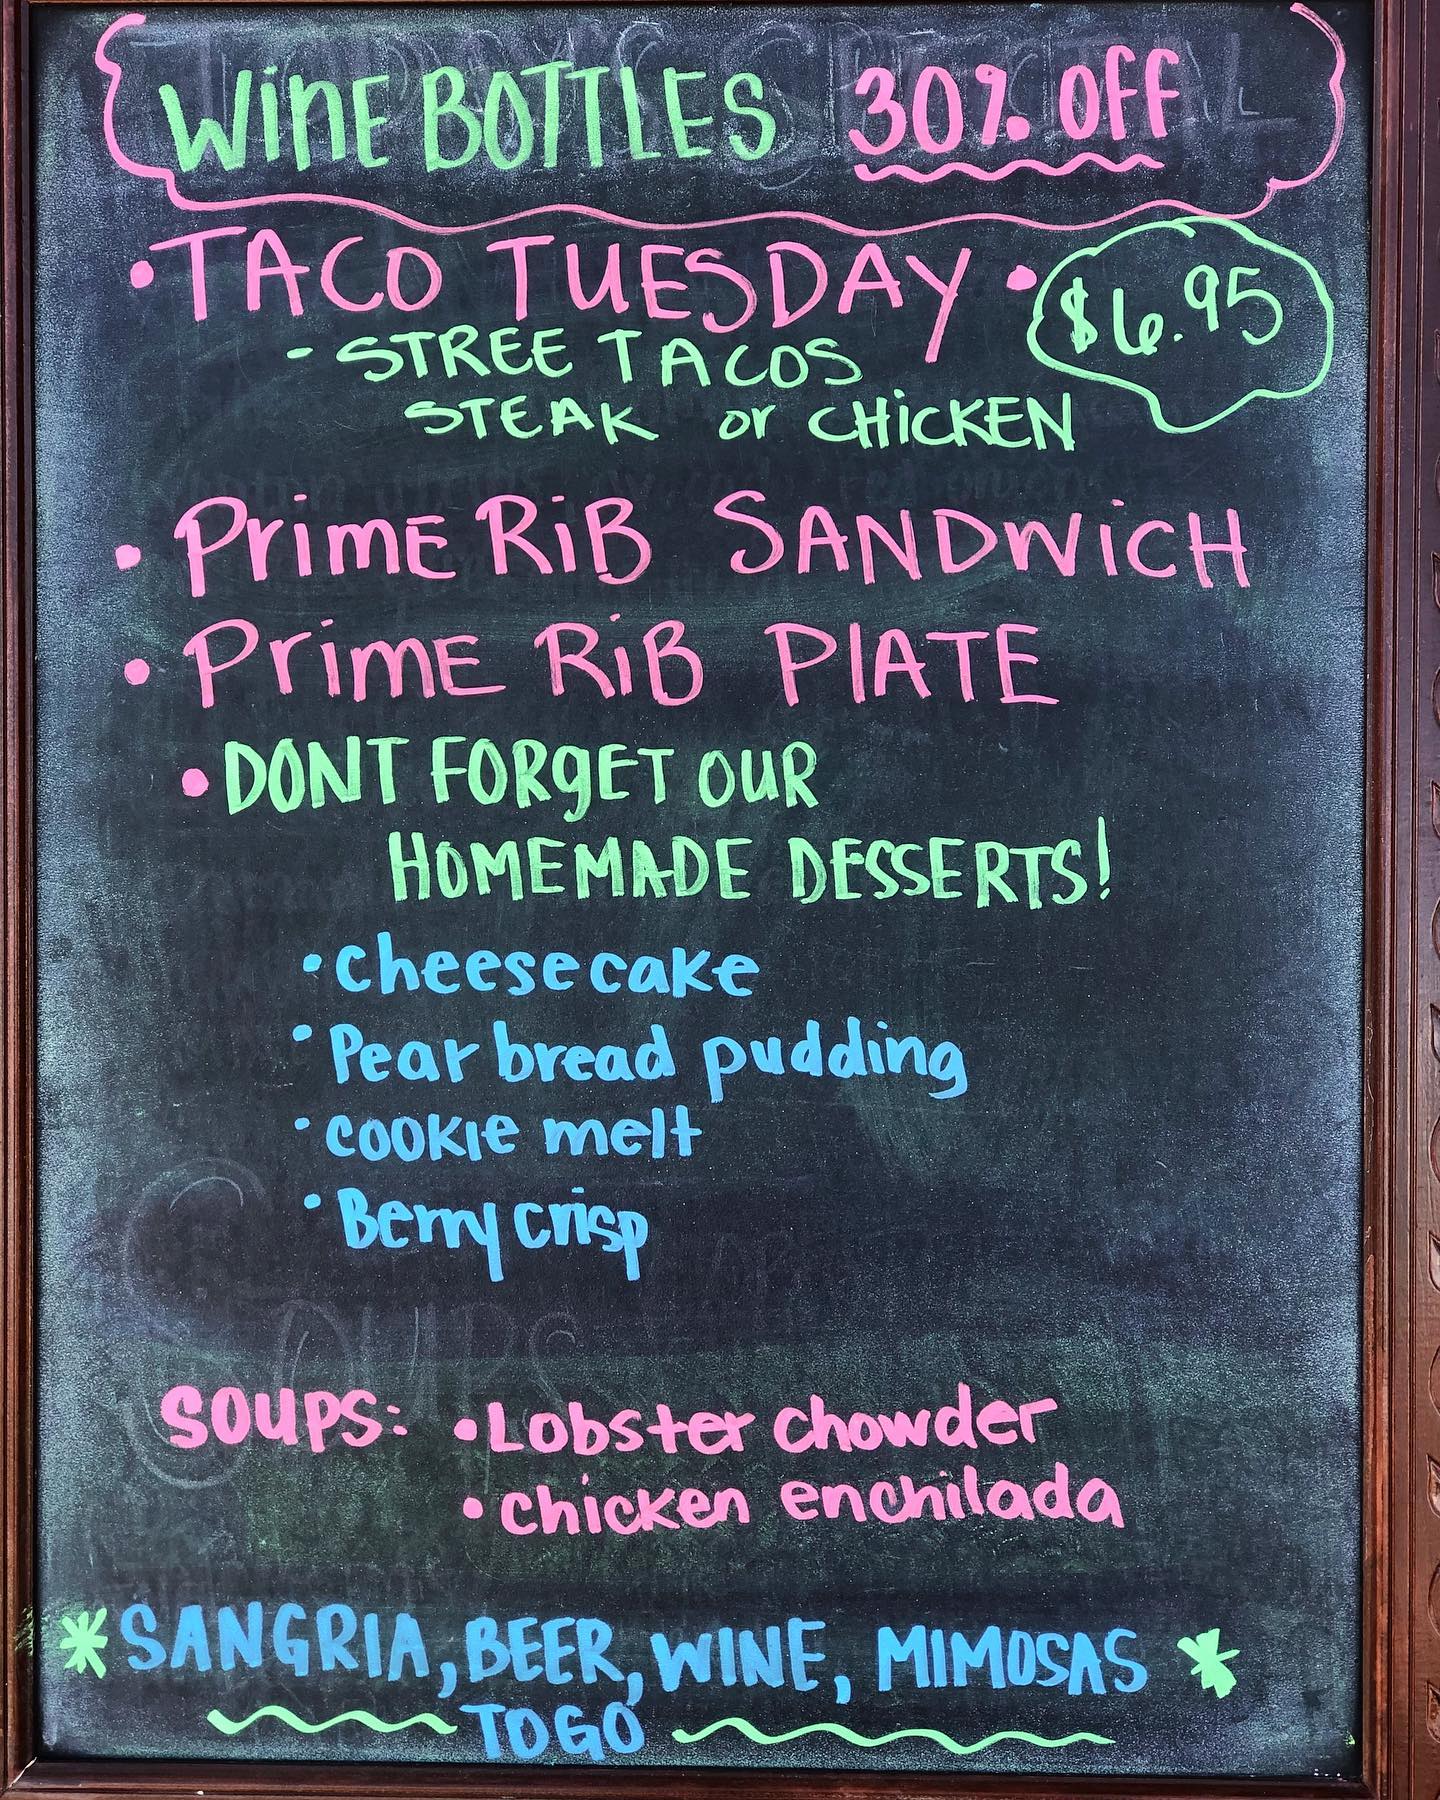 WINE BOTTLES 30% OFF
• TACO TUESDAY • $6.95
- STREET TACOS
STEAK or CHICKEN
• PRIME RIB SANDWICH
• PRIME RIB PLATE
• DONT FORGET OUR
HOMEMADE DESSERTS!
• Cheesecake
• Pear bread pudding
• cookie melt
• Berry crisp
SOUPS: • Lobster chowder
• chicken enchilada
* SANGRIA, BEER, WINE, MIMOSAS *
TOGO